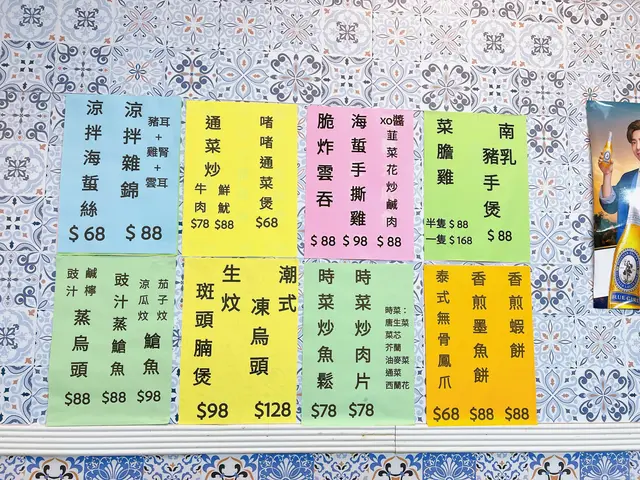 涼拌雜錦
豬耳
+
雞腎
+
雲耳
$88
涼拌海蜇絲
$68
啫啫通菜煲
$68
通菜炒
鮮魷
$88
牛肉
$78
xo醬
韮菜花炒鹹肉
$88
海蜇手撕雞
$98
脆炸雲吞
$88
南乳
豬手煲
$88
菜膽雞
半隻$88
一隻$168
茄子炆
涼瓜炆
鱠魚
$98
豉汁蒸鱠魚
$88
鹹檸
豉汁
蒸烏頭
$88
潮式
凍烏頭
$128
生炆
斑頭腩煲
$98
時菜炒肉片
$78
時菜炒魚鬆
$78
時菜：
唐生菜
菜芯
芥蘭
油麥菜
通菜
西蘭花
香煎蝦餅
$88
香煎墨魚餅
$88
泰式無骨鳳爪
$68